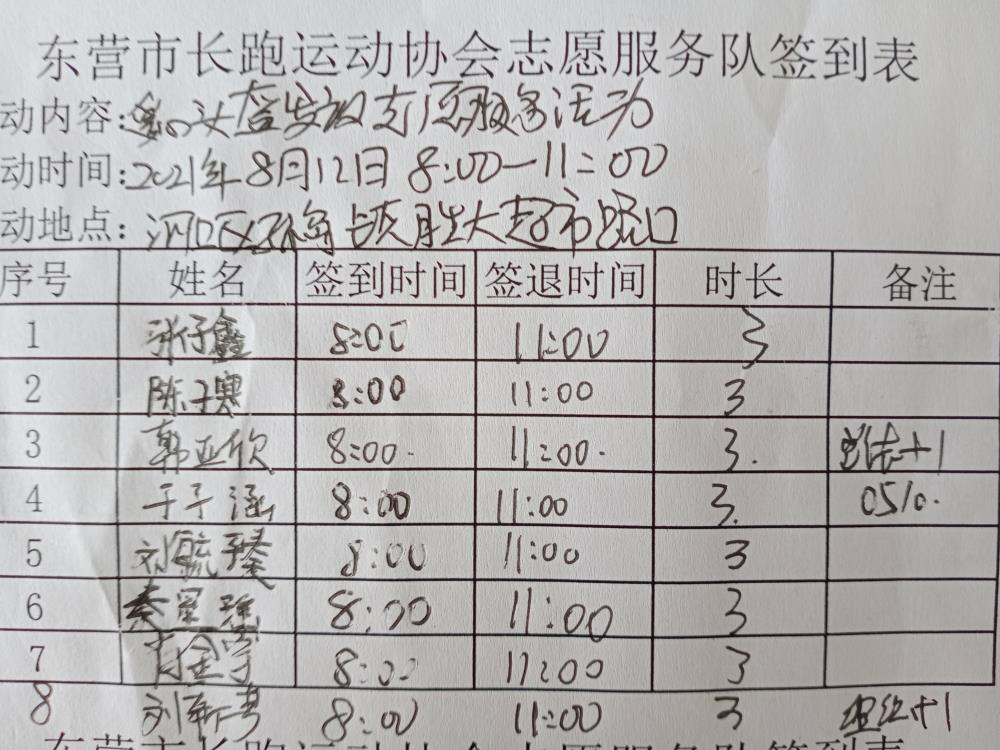 东营市长跑运动协会志愿服务队签到表
动内容: 志愿服务活动
动时间:2021年8月12日 8:00—11:00
动地点: 河口区 镇胜大超市路口
序号 姓名 签到时间 签退时间 时长 备注
1 张仔鑫 8:00 11:00 3
2 陈子寒 8:00 11:00 3
3 郭亚欣 8:00 11:00 3. +1
4 于子涵 8:00 11:00 3. 0510.
5 刘毓 8:00 11:00 3
6 秦 8:00 11:00 3
7 8:00 11:00 3
8 刘新 8:00 11:00 3 +1
东营市长跑运动协会志愿服务队签到表